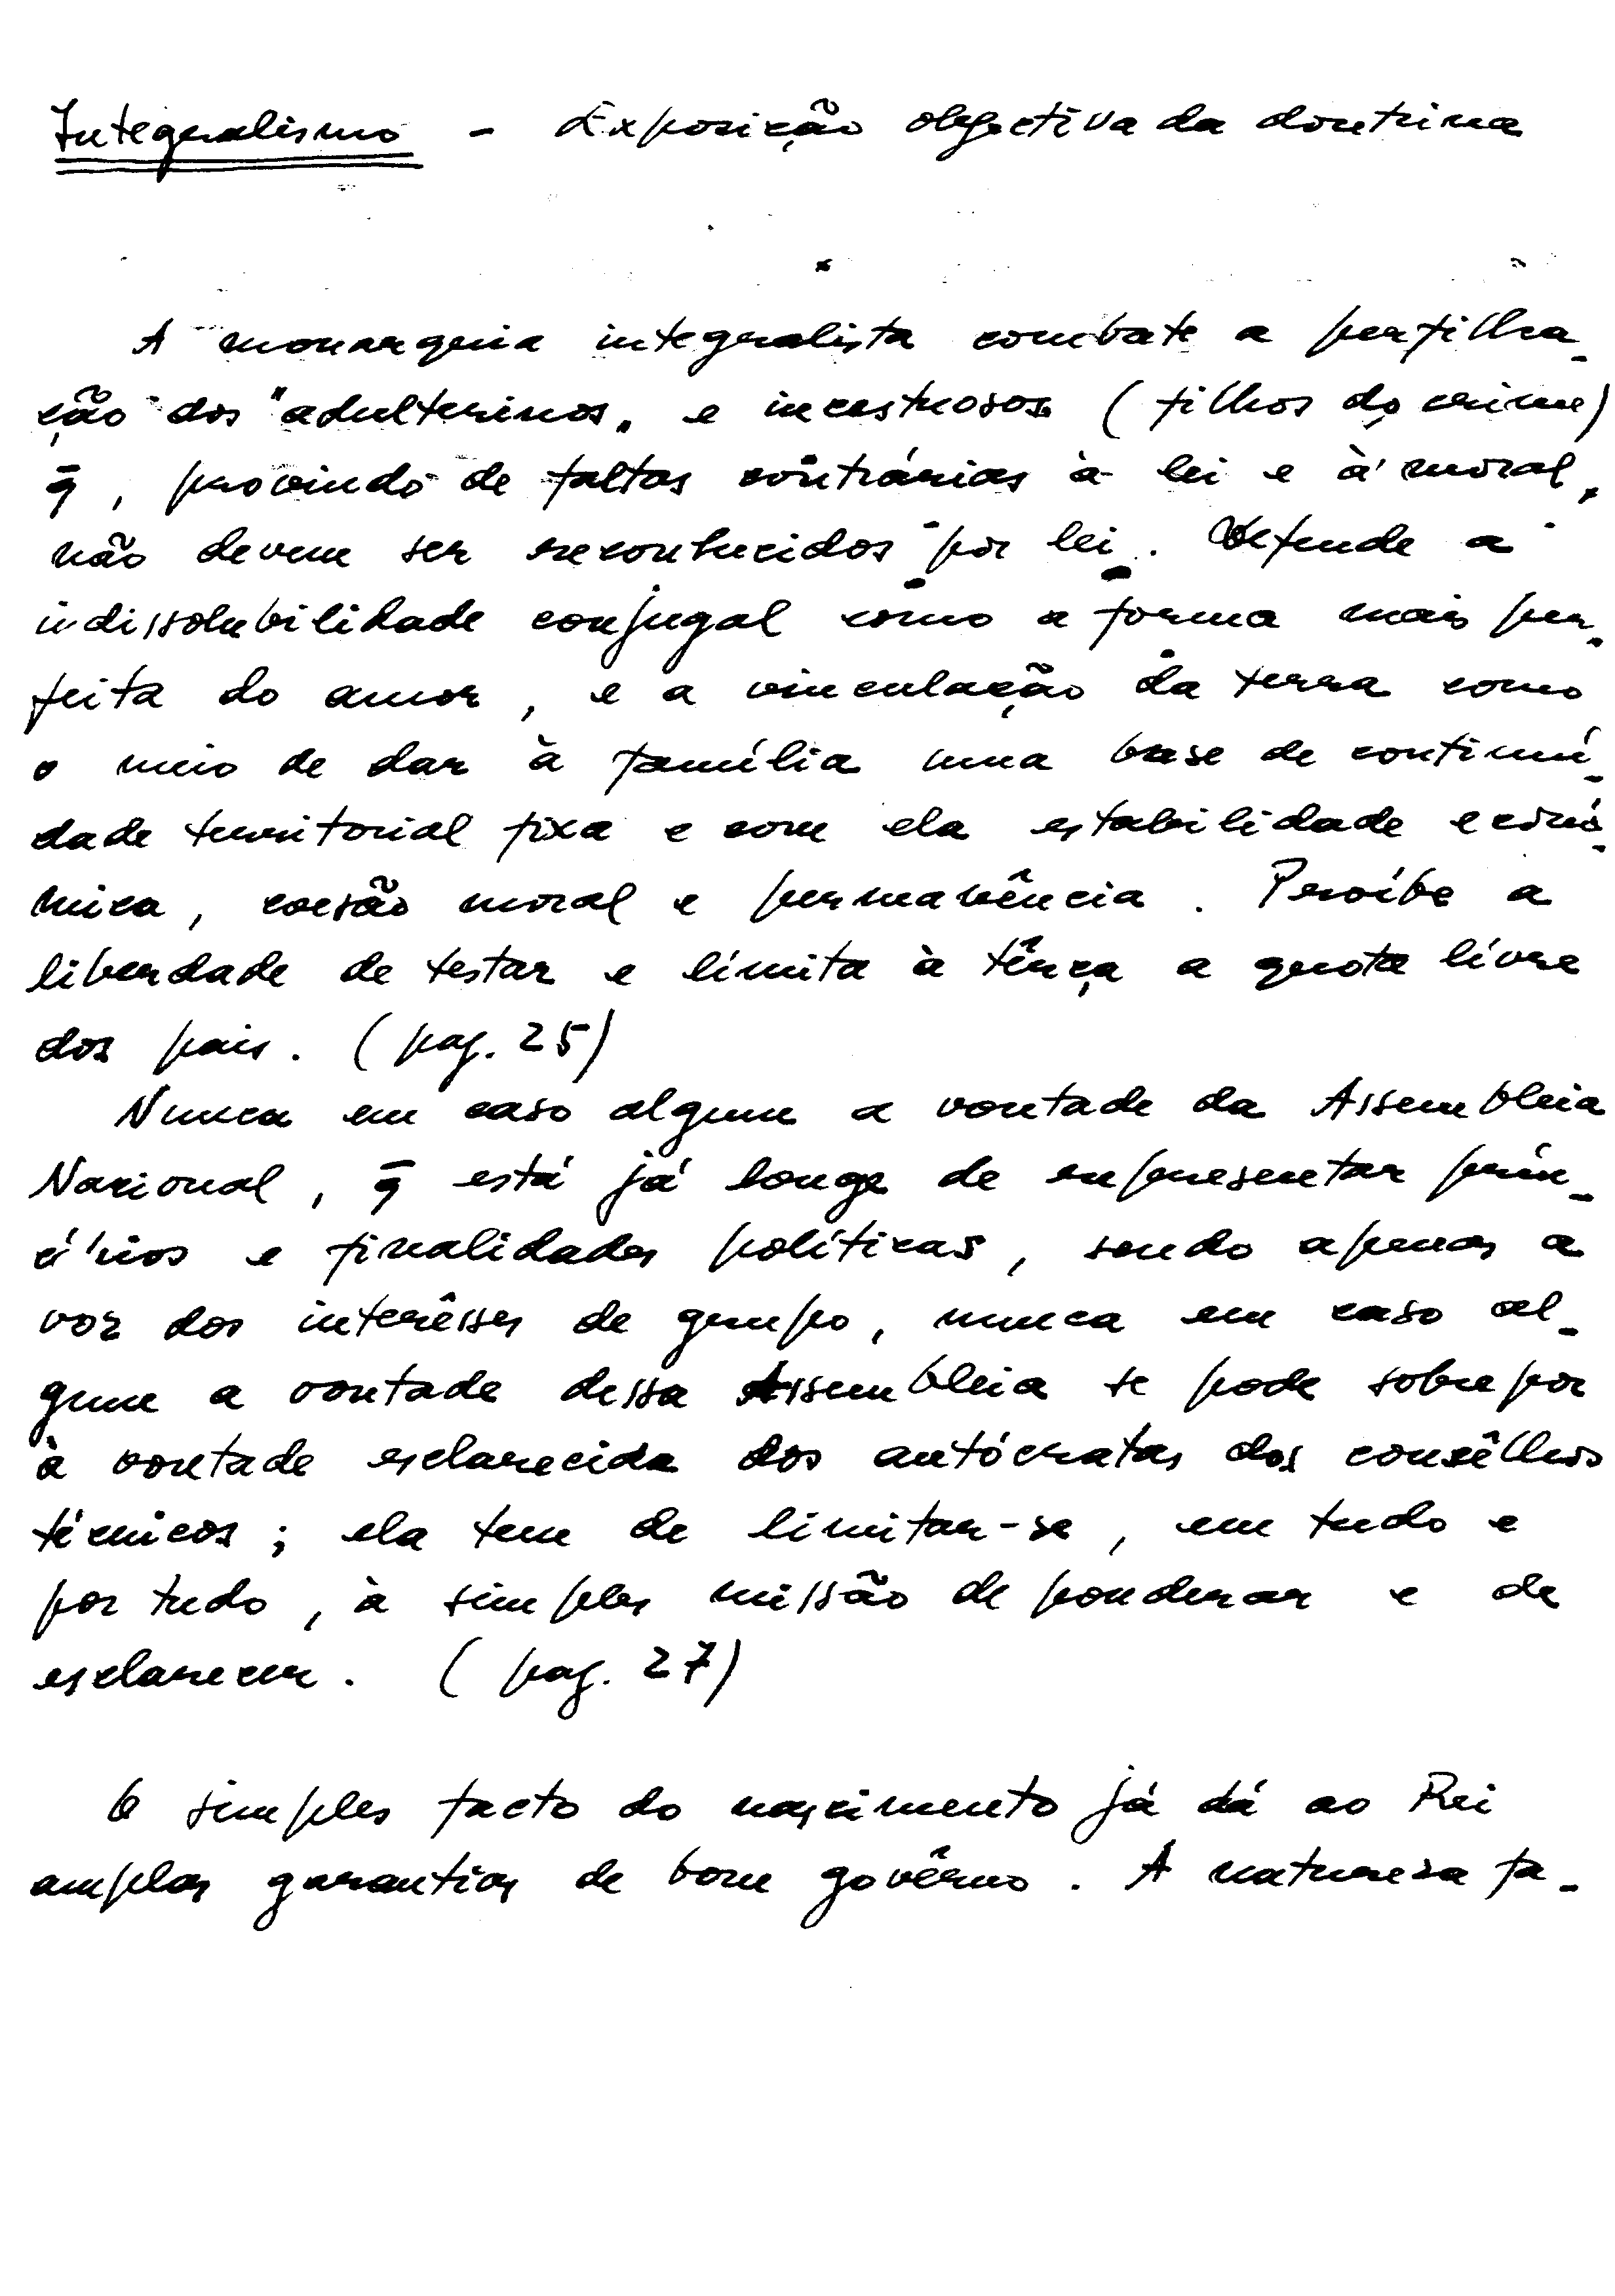 Integralismo - Exposição objectiva da doutrina
A monarquia integralista combate a perfilha-
ção dos adulterinos, e incestuosos (filhos do crime)
q̄, provindo de faltas contrárias à lei e à moral,
não devem ser reconhecidos por lei. Defende a
indissolubilidade conjugal como a forma mais per-
feita do amor, e a vinculação da terra como
o meio de dar à família uma base de continuï-
dade territorial fixa e com ela estabilidade econó-
mica, coesão moral e permanência. Proíbe a
liberdade de testar e limita à têrça a quota livre
dos pais. (pag. 25)
Nunca em caso algum a vontade da Assembleia
Nacional, q̄ está já longe de representar prin-
cípios e finalidades políticas, sendo apenas a
voz dos interêsses de grupo, nunca em caso al-
gum a vontade dessa Assembleia se pode sobrepor
à vontade esclarecida dos autócratas dos consêlhos
técnicos; ela tem de limitar-se, em tudo e
por tudo, à simples missão de ponderar e de
esclarecer. (pag. 27)
O simples facto do nascimento já dá ao Rei
amplas garantias de bom govêrno. A naturesa fa-